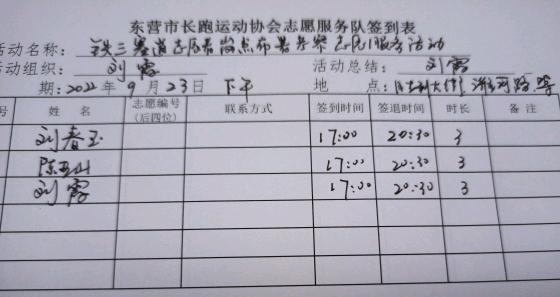 东营市长跑运动协会志愿服务队签到表
活动名称：铁三赛道志愿者岗点布置考察志愿服务活动
活动组织：刘霞 活动总结：刘霞
期：2022年9月23日 下午 地点：
号 姓名 志愿编号（后四位） 联系方式 签到时间 签退时间 时长 备注
刘春玉 17:00 20:30 3
17:00 20:30 3
刘霞 17:00 20:30 3